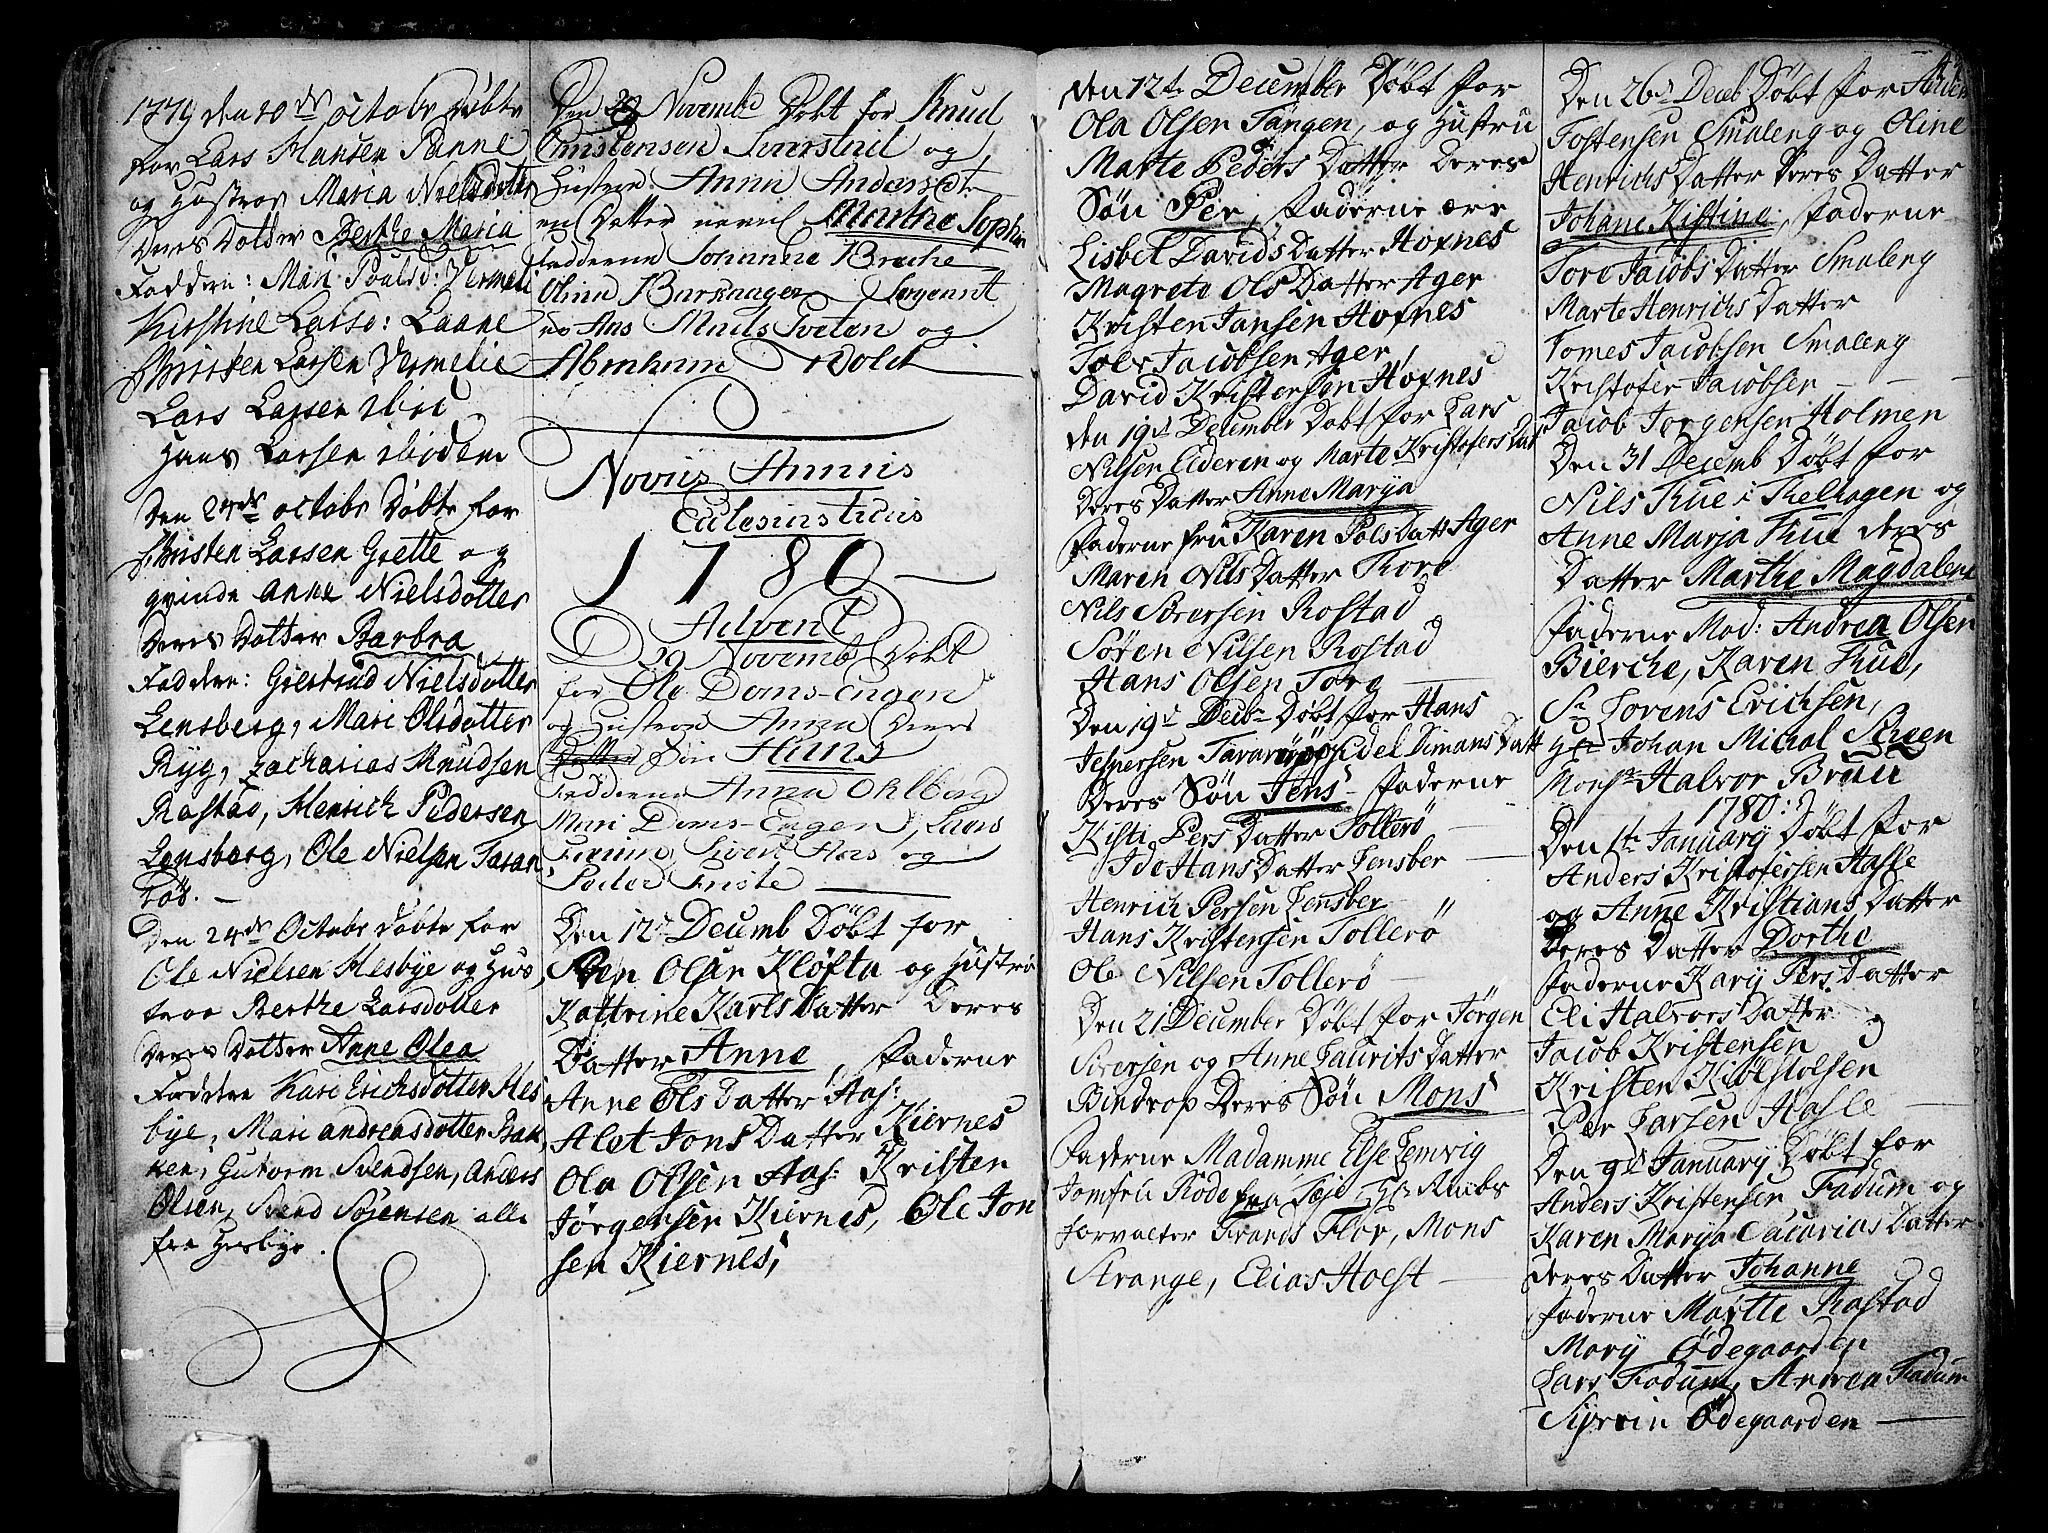 1779 den 10de octobr Døbte
for Lars Hansen Panne
og Hustroe Maria Nielsdotter
Deres Dotter Berthe Maria
Faddere: Mari Poulsd: Vermeli
Kirstine Larsd: Laane
Christen Larsen Vermelie
Lars Larsen
Hans Larsen
Den 24de octobr Døbte for
Christen Larsen Grette og
qvinde Anne Nielsdotter
Deres Dotter Barbra
Faddere: Giertrud Nielsdotter
Lensberg, Mari Olsdotter
Ryg, Zacharias Knudsen
Rastad, Henrich Pedersen
Lensberg, Ole Nielsen Taran
röd. -
Den 24de Octobr döbte for
Ole Nielsen Hesbye og Hus
troe Berthe Larsdotter
Deres Dotter Anne Olea
Faddere Kari Erichsdotter Hes
bye, Mari andreasdotter Bak
ken, Gutorm Svendsen, Anders
Olsen, Svend Sörensen alle
fra Hesbye.
Den 29 Novembr Døbt for Knud
Christensen og
Hustroe Anna Andersdtr
en Datter navnl Marthe Sophie
Fadderne Johanna Breche
Olina Barkager Sergeant
Mads Eveten og
Abraham Bolch
Novus Annus
Eclesiasticus
1780
Advent
D 29 Novemb Döbt
for Ole Doms-Engen
og Hustroe Anna Deres
Datter Sön Hans
Fadderne Anna Ohlberg
Mari Doms-Engen, Laers
Sivert Aas og
Peder Friste
Den 12t Decemb Döbt for
Olsen Kløfta og Hustrø
Kattrine Karls Datter Deres
Datter Anne, Faderne
Anne Ols Datter Aas:
Alet Jons Datter Kiernes
Ola Olsen Aas: Kristen
Jörgensen Kiernes, Ole Jon
sen Kiernes,
den 12te December Döbt for
Ola Olsen Tangen, og Hustru
Marte Peders Datter Deres
Sön Per, Faderne ære
Lisbet Davids Datter Hoxnes
Magrete Ols Datter Ager
Kristen Jansen Hoxnes
Toer Jacobsen Ager
David Kristensen Hoxnes
den 19de December Döbt for Lars
Nilsen Elderen og Marte Kristofers Dat
Deres Datter Anne Marya
Faderne fru Karen Pols Datt Ager
Maren Nils Datter Thore
Nils Sörersen Rostad
Sören Nilsen Rostad
Hans Olsen Tore
Den 19d Decbr Döbt for Hans
Jespersen Edel Dimans Datt
Deres Sön Jens Faderne
Kisti Pers Datter Tollerö
Ide Hans Datter Lensber
Henrich Persen Lensber
Hans Kristensen Tollerö
Ole Nilsen Tollerö
Den 21 December Döbt for Jörgen
Siversen og Anne Laurits Datter
Bindrop Deres Sön Mons
Faderne Madamme Else Lemvig
Jomfru Rode fra Teje, Hr Raabs
forvalter Frands Flor, Mons
Strange, Elias Hoest
Den 26d Deceb Döbt for Halvor
Tostensen Smaleng og Oline
Henrichs Datter Deres Datter
Johane Kistine, Faderne
Tore Jacobs Datter Smaleng
Marte Henrichs Datter
Tomes Jacobsen Smaleng
Kristofer Jacobsen
Jacob Jorgensen Holmen
Den 31 Decemb Döbt for
Nils Thue i Thelhagen og
Anne Marja Thue deres
Datter Marthe Magdalene
Faderne Mad: Andrea Olsen
Bierche, Karen Thue,
Sr Lorens Erichsen,
Hr Johan Michal Screen
Monsr Halvor Bruu
1780:
Den 1te January Döbt for
Anders Kristofersen Hasle
og Anne Kristians Datter
Deres Datter Dorthe
Faderne Kary Pers Datter
Eli Halvors Datter
Jacob Kristensen
Kristen Kibsholsen
Per Larsen Hasle
Den 9de January Döbt for
Anders Kristensen Fadum og
Karen Marya Cacarias Datter
deres Datter Johanne
Faderne Marthe Rastad
Mary Ödegaarden
Lars Fadum, Andrea Fadum
Siverin Ödegaarden